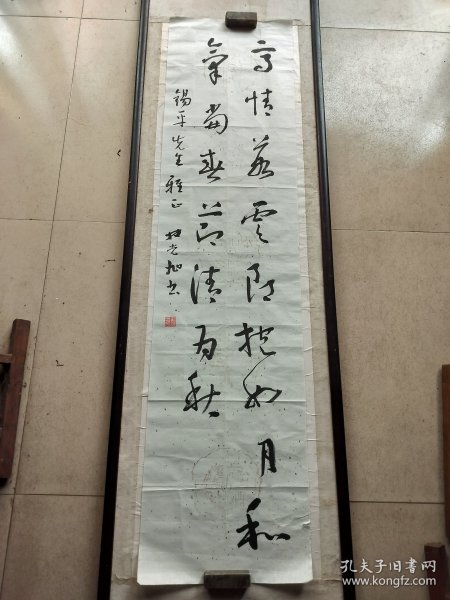 高情若云朗抱如月和
气当春节清为秋
锡平先生雅正
孔夫子旧书网
www.kongfz.com